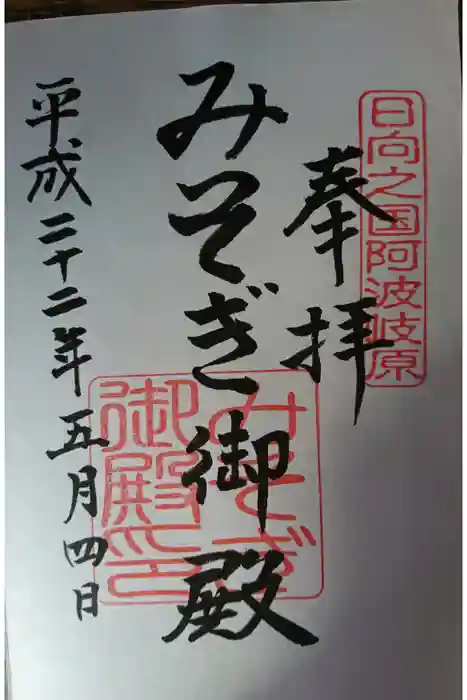 日向之国阿波岐原
奉拝
みそぎ御殿
みそぎ
御殿之印
平成二十二年五月四日